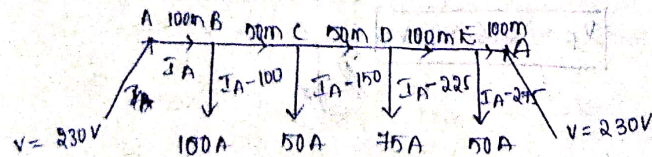 A 100m B 50m C 50m D 100m E 100m A
I_A I_A-100 I_A-150 I_A-225 I_A-275
I_A
V = 230V 100A 50A 75A 50A V = 230V